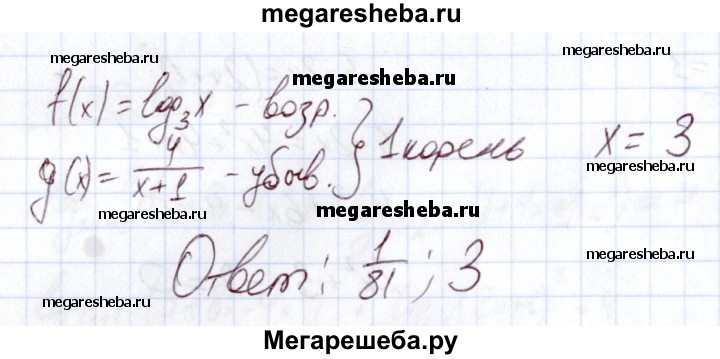 megaresheba.ru
megaresheba.ru
megaresheba.ru
f(x) = log₃x - возр.
g(x) = 4/(x+1) - убыв. } 1 корень x = 3
megaresheba.ru
megaresheba.ru
megaresheba.ru
megaresheba.ru
Ответ: 1/81; 3
megaresheba.ru
megaresheba.ru
Мегарешеба.ру